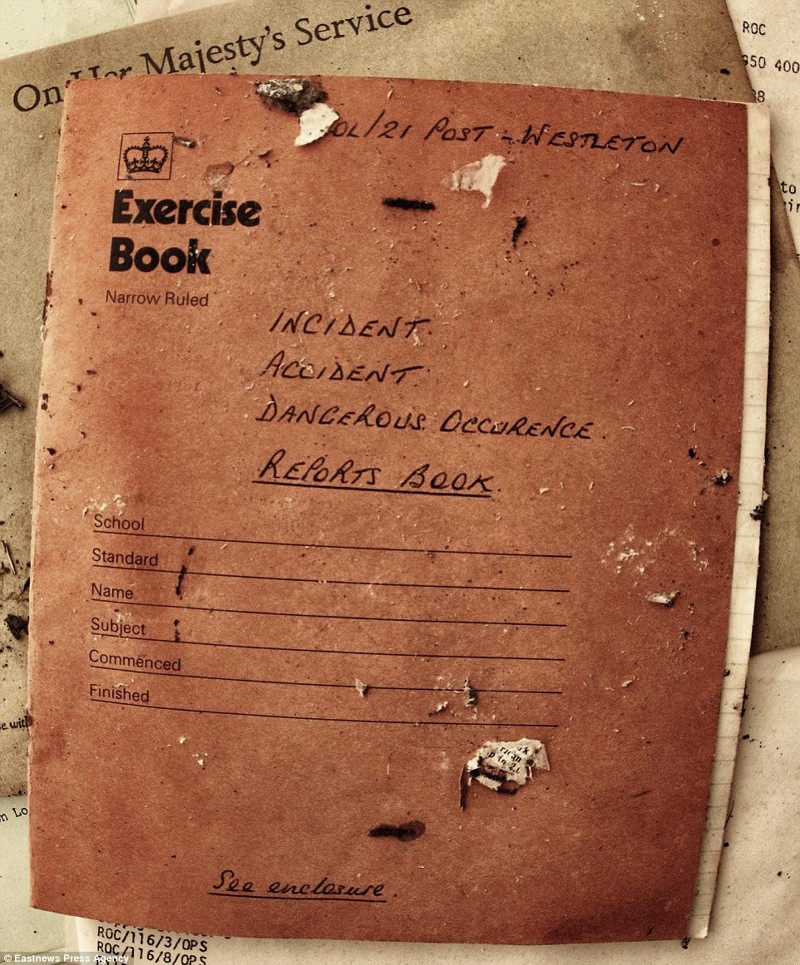 On Her Majesty's Service
ROC
950 400
OL/21 POST - WESTLETON
Exercise
Book
Narrow Ruled
INCIDENT.
ACCIDENT.
DANGEROUS OCCURENCE.
REPORTS BOOK.
School
Standard
Name
Subject
Commenced
Finished
See enclosure.
ROC/116/3/OPS
ROC/116/8/OPS
© Eastnews Press Agency